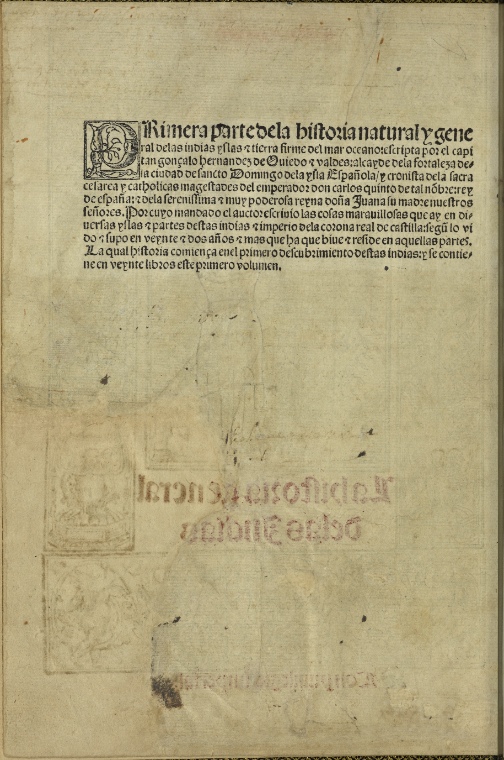 PRimera parte dela historia natural y gene
ral delas indias yslas ⁊ tierra firme del mar oceano: escripta por el capi
tan gonçalo hernandez de Ouiedo ⁊ valdes: alcayde dela fortaleza de-
la ciudad de sancto Domingo dela ysla Española/ y cronista dela sacra
cesarea y catholicas magestades del emperador don carlos quinto de tal nõbre: rey
de españa: ⁊ dela serenissima ⁊ muy poderosa reyna doña Juana su madre nuestros
señores. Por cuyo mandado el auctor escriuio las cosas marauillosas que ay en di-
uersas yslas ⁊ partes destas indias ⁊ imperio dela corona real de castilla: segũ lo vi
do ⁊ supo en veynte ⁊ dos años ⁊ mas que ha que biue ⁊ reside en aquellas partes.
La qual historia comiença enel primero descubrimiento destas indias: y se contie-
ne en veynte libros este primero volumen.
La historia general
delas Indias